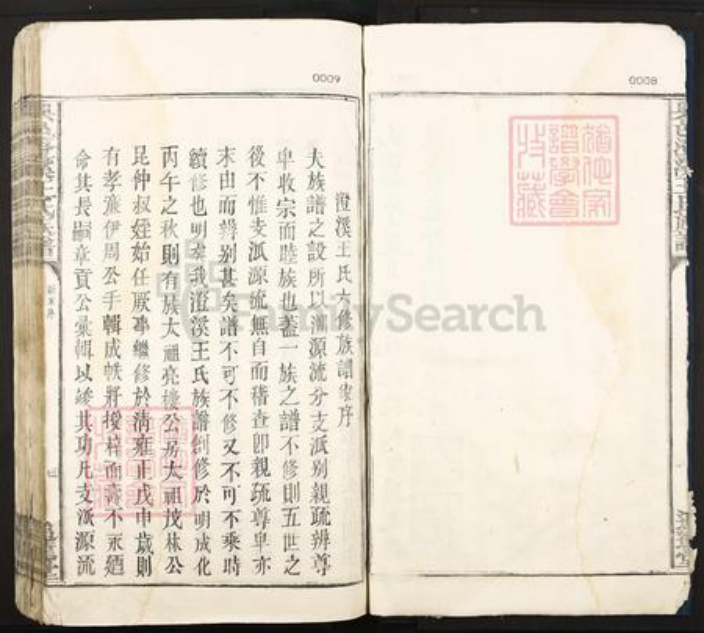 0008
0009
澄溪王氏六修族譜彙序
夫族譜之設所以溯源流分支派別親疏辨尊
卑收宗而睦族也蓋一族之譜不修則五世之
後不惟支派源流無自而稽查卽親疏尊卑亦
末由而辨別甚矣譜不可不修又不可不乘時
續修也明矣我澄溪王氏族譜創修於明成化
丙午之秋則有族大祖亮樓公房大祖茂林公
昆仲叔姪始任厥事繼修於清雍正戊申歲則
有孝廉伊周公手輯成帙將授梓而壽不永迺
命其長嗣章貢公彙輯以竣其功凡支派源流
FamilySearch